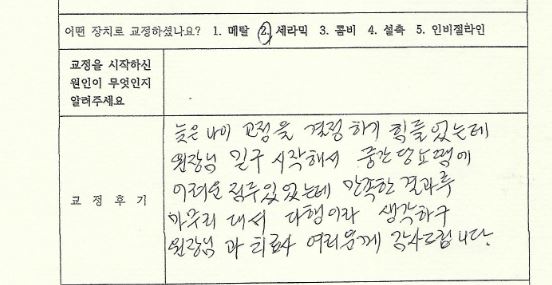 어떤 장치로 교정하셨나요? 1. 메탈 2. 세라믹 3. 콤비 4. 설측 5. 인비절라인
교정을 시작하신
원인이 무엇인지
알려주세요
교 정 후 기
늦은 나이 교정을 결정하기 힘들었는데
원장님 믿구 시작해서 중간 당뇨땜에
어려운 점두 있었는데 만족한 결과루
마무리 대서 다행이라 생각하구
원장님과 치료사 여러분께 감사드립니다.